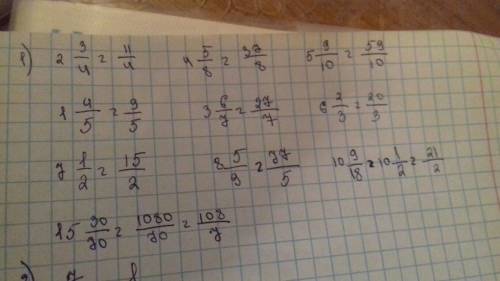 1) 2 3/4 = 11/4   4 5/8 = 37/8   5 9/10 = 59/10
1 4/5 = 9/5   3 6/7 = 27/7   6 2/3 = 20/3
7 1/2 = 15/2   8 5/9 = 77/5   10 9/18 = 10 1/2 = 21/2
15 30/70 = 1080/70 = 108/7
7